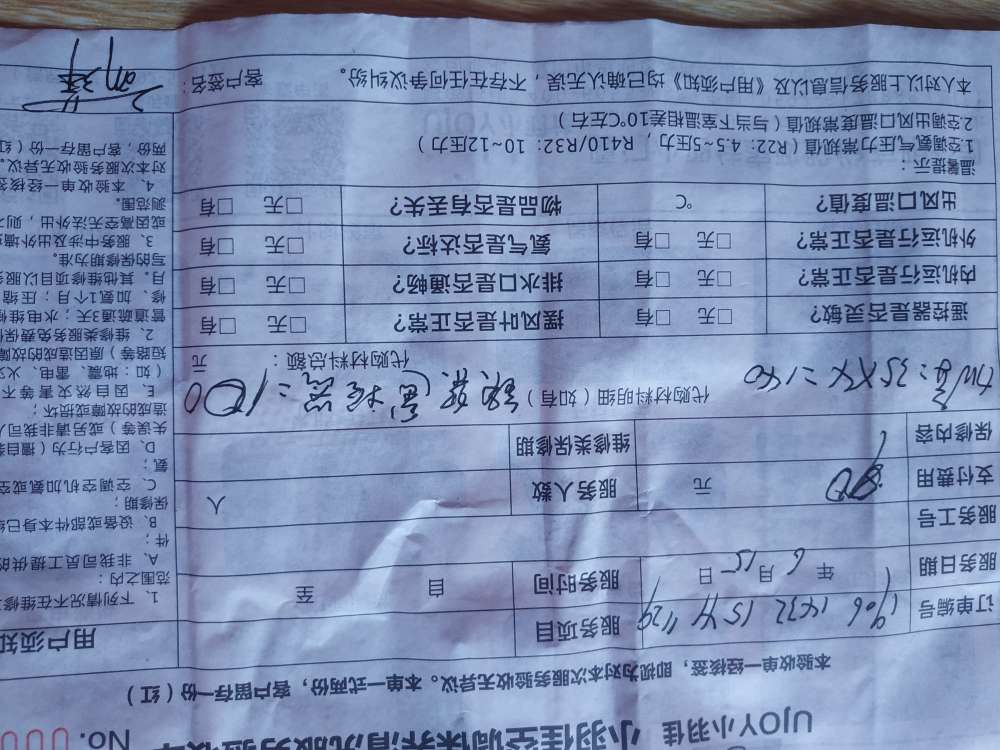 UJOY小羽佳 小羽佳空调保养清洗服务验收单
No. 000
本验收单一经核签，即视为对本次服务验收无异议。本单一式两份，客户留存一份（红）
订单编号
服务项目
服务日期 年 6 月 15 日
服务时间 自 至
服务工号
支付费用 80 元
服务人数 人
保修内容
维修类保修期
代购材料明细（如有）
代购材料总额： 元
遥控器是否灵敏？ □无 □有
摆风叶片正常？ □无 □有
内机运行是否正常？ □无 □有
排水口是否通畅？ □无 □有
外机运行是否正常？ □无 □有
氨气是否达标？ □无 □有
出风口温度值？ ℃
物品是否有丢失？ □无 □有
温馨提示：
1空调氨气压力常规值（R22：4.5~5压力，R410/R32：10~12压力）
2空调出风口温度常规值（与当下室温相差10℃左右）
本人对以上服务信息以及《用户须知》均已确认无误，不存在任何争议纠纷。 客户签名：
用户须知
1、下列情况不在维修
范围之内：
A、非我司员工提供的
件；
B、设备或部件本身已经
保修期；
C、空调空机加氨或空
氨；
D、因客户行为（擅自
失误等）或另请非我司人
造成的故障或损坏；
E、因自然灾害等不
（如：地震、雷电、火
短路等）原因造成的故障
2、维修类服务免费保
管道疏通3天；水电维修
修、加氨1个月；压缩
月。其他维修项目以服务
写的保修期为准。
3、服务中涉及出外墙
或因高空无法外出，则
测范围。
4、本验收单一经核签
对本次服务验收无异议。
两份，客户留存一份（红